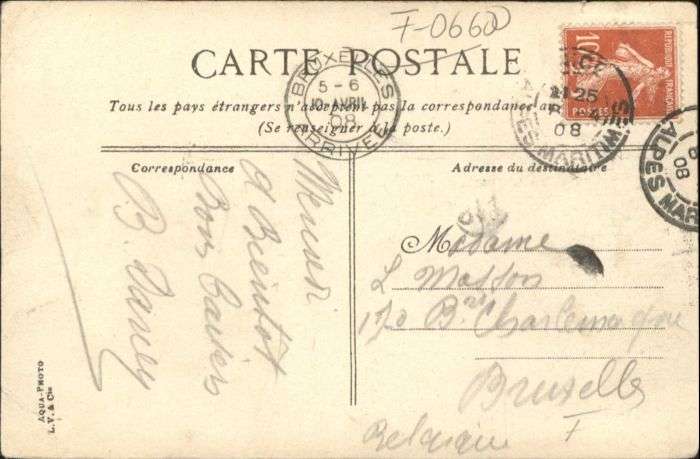 F-0660
CARTE POSTALE
BRUXELLES
5-6
10 AVRIL
08
ARRIVEE
REPUBLIQUE FRANÇAISE
10
POSTES
21 25
08
ALPES MARITIMES
08
ALPES MAR
Tous les pays étrangers n'acceptent pas la correspondance au
(Se renseigner à la poste.)
Correspondance
Adresse du destinataire
Mercui
A Bientot
Bons Baisers
B. Davey
Madame
L Masson
170 Bd Charlemagne
Bruxelles
Belgique
F
AQUA-PHOTO
L. V. & Cie